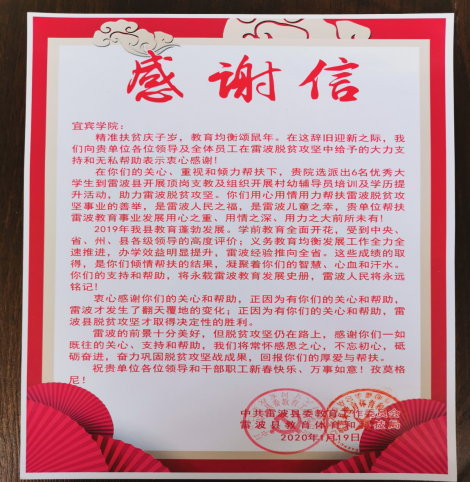 感谢信
宜宾学院：
精准扶贫庆子岁，教育均衡颂鼠年。在这辞旧迎新之际，我
们向贵单位各位领导及全体员工在雷波脱贫攻坚中给予的大力支
持和无私帮助表示衷心感谢！
在你们的关心、重视和倾力帮扶下，贵院选派出6名优秀大
学生到雷波县开展顶岗支教及组织开展村幼辅导员培训及学历提
升活动，助力雷波脱贫攻坚。你们用心用情用力帮扶雷波脱贫攻
坚事业的善举，是雷波人民之福，是雷波儿童之幸，贵单位帮扶
雷波教育事业发展用心之重、用情之深、用力之大前所未有！
2019年我县教育蓬勃发展。学前教育全面开花，受到中央、
省、州、县各级领导的高度评价；义务教育均衡发展工作全力全
速推进，办学效益明显提升，雷波经验推向全省。这些成绩的取
得，是你们倾情帮扶的结果，凝聚着你们的智慧、心血和汗水。
你们的支持和帮助，将永载雷波教育发展史册，雷波人民将永远
铭记！
衷心感谢你们的关心和帮助，正因为有你们的关心和帮助，
雷波才发生了翻天覆地的变化；正因为有你们的关心和帮助，雷
波县脱贫攻坚才取得决定性的胜利。
雷波的前景十分美好，但脱贫攻坚仍在路上，感谢你们一如
既往的关心、支持和帮助，我们将常怀感恩之心，不忘初心，砥
砺奋进，奋力巩固脱贫攻坚战成果，回报你们的厚爱与帮扶。
祝贵单位各位领导和干部职工新春快乐、万事如意！孜莫格
尼！
中共雷波县委教育工作委员会
雷波县教育体育和科技局
2020年1月19日